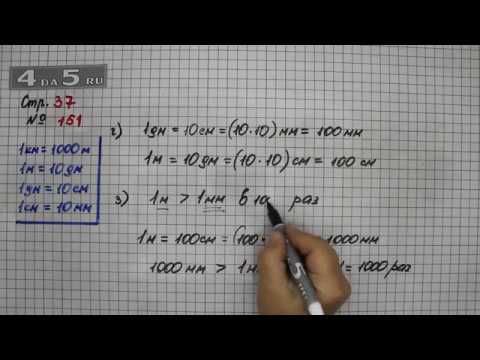 4 DA 5 RU
Стр. 37
№ 161
1км = 1000м
1м = 10дм
1дм = 10см
1см = 10мм
2) 1дм = 10см = (10·10) мм = 100мм
1м = 10дм = (10·10) см = 100 см
3) 1м > 1мм в раз
1м = 100см = (100· 1000мм
1000мм > 1 1 = 1000 раз